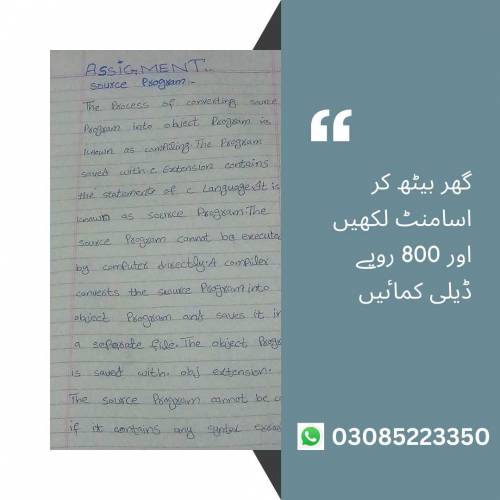 ASSIGMENT:-
Source Program:-
The Process of converting source
Program into object Program is
known as compiling. The Program
saved with c Extension contains
the statements of c Language. It is
known as source Program. The
source Program cannot be execute
by computer directly. A compiler
converts the source Program into
object Program and saves it in
a separate file. The object Progr
is saved with. obj extension.
The source Program cannot be c
if it contains any syntax
گھر بیٹھ کر
اسامنٹ لکھیں
اور 800 روپے
ڈیلی کمائیں
03085223350